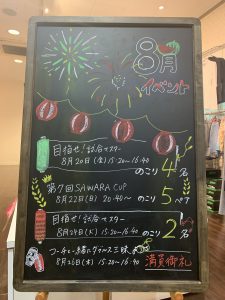 8月
イベント
目指せ!試合マスター
8月20日(金) 15:20~16:40
のこり4名
第7回 SAWARA CUP
8月22日(日) 20:40~
のこり5ペア
目指せ!試合マスター
8月24日(火) 15:20~16:40
のこり2名
コーチと一緒にダブルス三昧
8月26日(木) 15:20~16:40
満員御礼